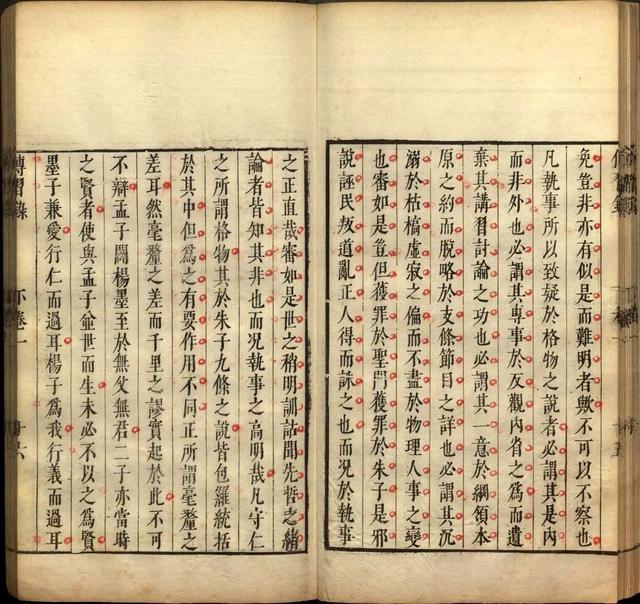 免豈非亦有似是而難明者歟不可以不察也
凡執事所以致疑於格物之說者必謂其是內
而非外也必謂其專事於反觀內省之爲而遺
棄其講習討論之功也必謂其一意於綱領本
原之約而脫略於支條節目之詳也必謂其沉
溺於枯槁虛寂之偏而不盡於物理人事之變
也審如是豈但獲罪於聖門獲罪於朱子是邪
說誣民叛道亂正人得而誅之也而況於執事
之正直哉審如是世之稍明訓詁聞先哲之緒
論者皆知其非也而況執事之高明哉凡守仁
之所謂格物其於朱子九條之說皆包羅統括
於其中但爲之有要作用不同正所謂毫釐之
差耳然毫釐之差而千里之謬實起於此不可
不辯孟子闢楊墨至於無父無君二子亦當時
之賢者使與孟子並世而生未必不以之爲賢
墨子兼愛行仁而過耳楊子爲我行義而過耳
傳習錄 下卷一 十六